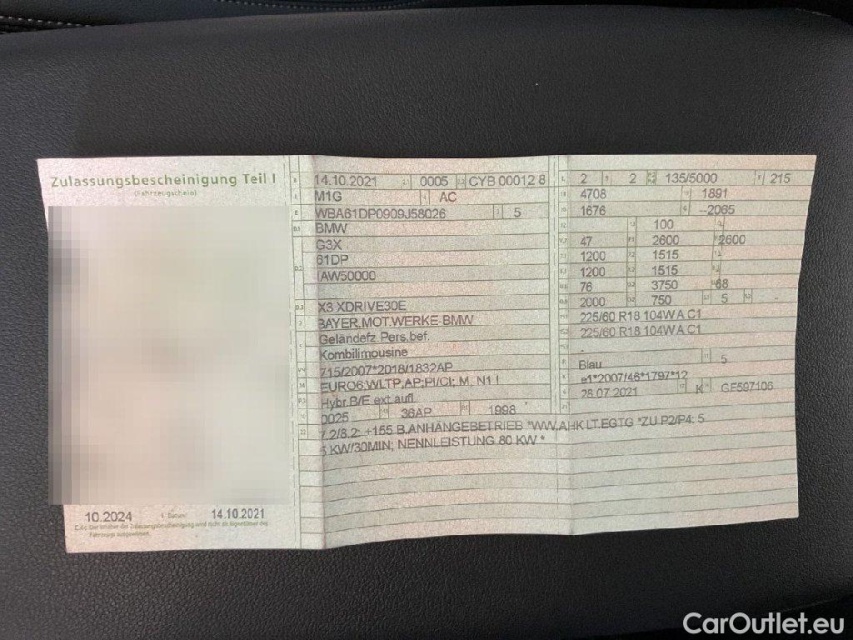 Zulassungsbescheinigung Teil I
(Fahrzeugschein)
10.2024
14.10.2021
14.10.2021 0005 CYB 00012 8
M1G AC
WBA61DP0909J58026 5
BMW
G3X
61DP
1AW50000
X3 XDRIVE30E
BAYER.MOT.WERKE-BMW
Geländefz.Pers.bef.
Kombilimousine
715/2007*2018/1832AP
EURO6;WLTP,AP;PI/CI; M, N1 I
Hybr.B/E ext.aufl
0025 36AP 1998
7.2/8.2: +155 B.ANHÄNGEBETRIEB *WW.AHK LT.EGTG *ZU P2/P4: 5
KW/30MIN; NENNLEISTUNG 80 KW *
2 2 135/5000 215
4708 1891
1676 –2065
100
47 2600 2600
1200 1515
1200 1515
76 3750 68
2000 750 5 -
225/60 R18 104W A C1
225/60 R18 104W A C1
-
Blau 5
e1*2007/46*1797*12
28.07.2021 K GE597106
CarOutlet.eu